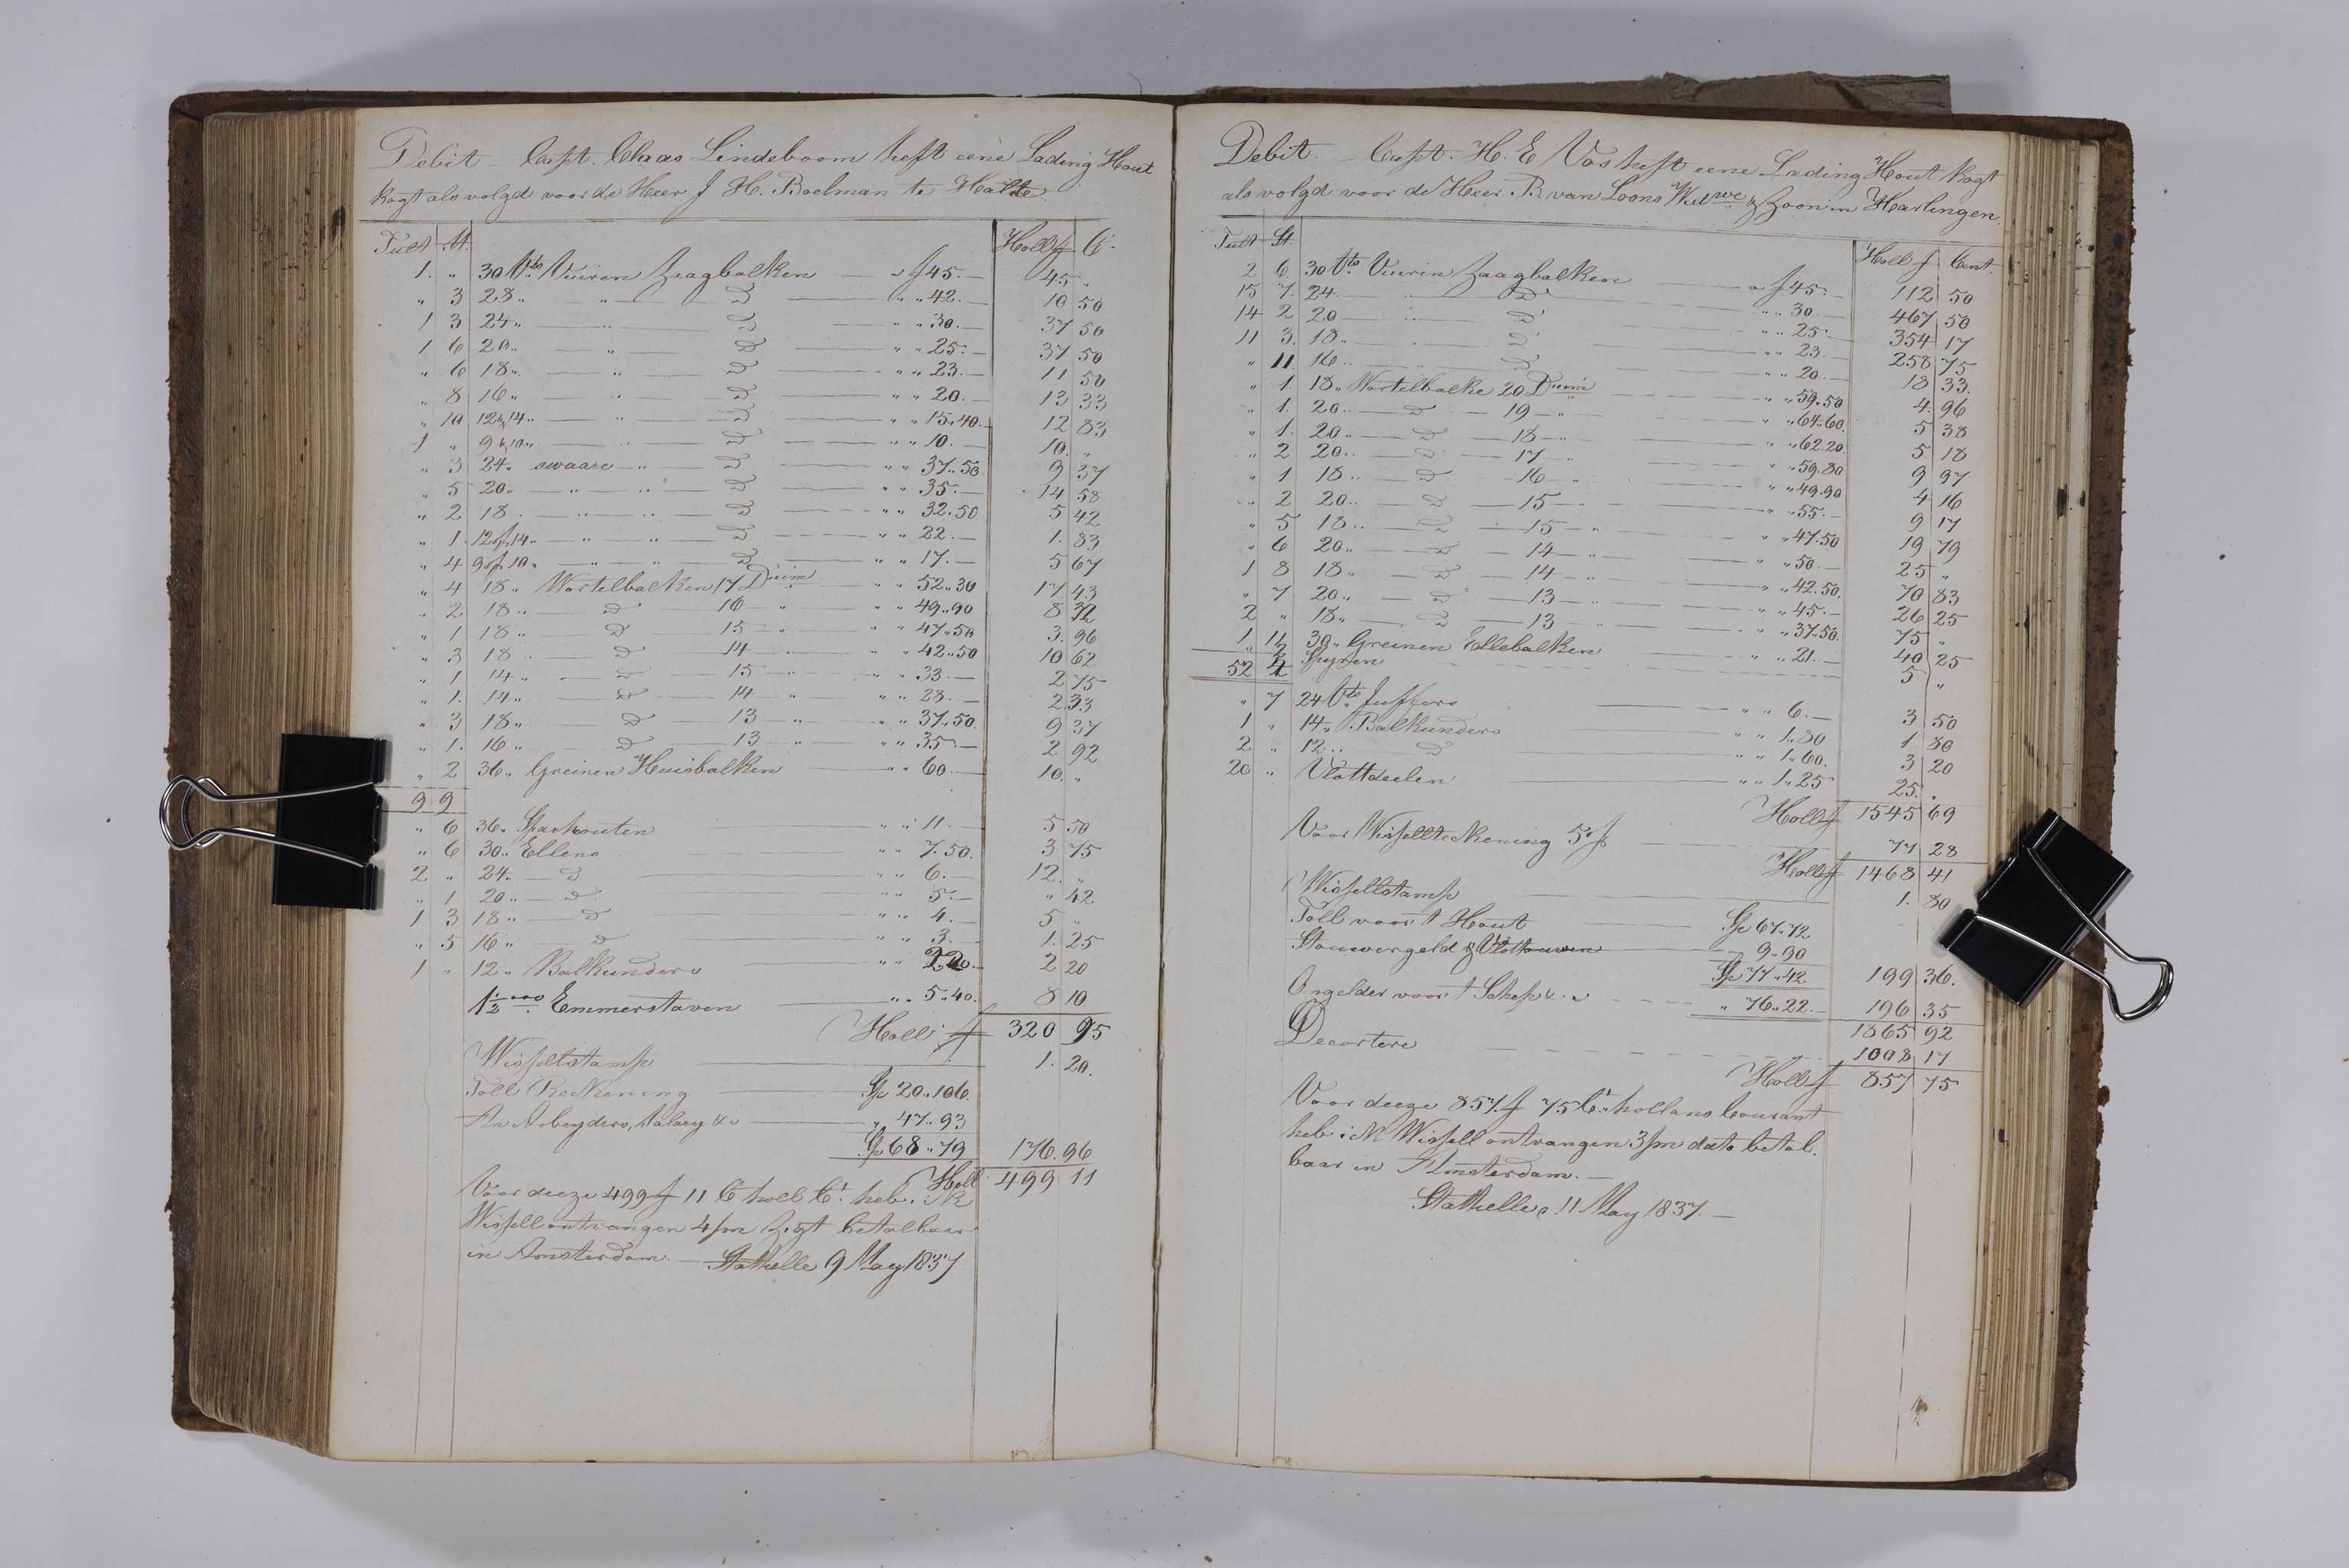 Debit — Capt. Claas Lindeboom heft eene Lading Hout
kogt als volgd voor de Heer J H. Boelman te
Tult St. Holl f Ct.
1. „ 30 Vts Vuiren Zaagbalken — a f 45.— 45 „
„ 3 28„ „ D — „ „ 42.— 10 50
1 3 24„ „ D — „ „ 30.— 37 50
1 6 20„ — „ — D — „ „ 25.— 37 50
„ 6 18„ — „ — D — „ „ 23.— 11 50
„ 8 16„ — „ — D — „ „ 20.— 13 33
„ 10 12 & 14„ — „ — D — „ „ 15„40.— 12 83
1 „ 9 & 10„ — „ — D — „ „ 10.— 10. „
„ 3 24„ swaare — „ — D — „ „ 37„50 9 37
„ 5 20„ — „ — „ — D — „ „ 35.— 14 58
„ 2 18„ — „ — „ — D — „ „ 32.50 5 42
„ 1. 12 of 14„ — „ — „ — D — „ „ 22.— 1. 83
„ 4 9 of 10„ — „ — „ — D — „ „ 17.— 5 67
„ 4 18„ Wortelbalken 17 Duim „ „ 52„30 17 43
„ 2 18„ — D — 16 — „ „ „ 49„90 8 32
„ 1 18„ D 15 — „ „ „ 47„50 3. 96
„ 3 18„ D 14 — „ „ „ 42„50 10 62
„ 1 14„ — D — 15 — „ „ „ 33.— 2 75
„ 1. 14„ — D — 14 „ „ „ 28.— 2 33
„ 3 18„ D 13 „ „ „ 37„50. 9 37
„ 1. 16„ D 13 „ „ „ 35.— 2 92
„ 2 36„ Greinen Huisbalken — „ „ 60.— 10. „
9 9
„ 6 36„ Sparhouten „ „ 11.— 5 50
„ 6 30„ Ellens — „ „ 7.50. 3 75
2 „ 24„ — D — „ „ 6.— 12. „
„ 1 20„ — D — „ „ 5.— „ 42
1 3 18„ — D — „ „ 4.— 5 „
„ 5 16„ — D — „ „ 3.— 1. 25
1 „ 12„ Balkunders — „ „ 2 20.— 2 20
1½ 000 Emmerstaven — „ „ 5„40. 8 10
Holl f 320 95
Wisselstamp — 1. 20.
Toll Reckening — Sp 20„106.
An Arbeyders, Salaey &c — „ 47„93
Sp 68„79 176. 96
Holl 499 11
Voor deeze 499 f 11 Ct holl Ct. heb ik
Wissell ontvangen 4/m Zigt betalbaar
in Amsterdam. — Stathelle 9 May 1837
Debit. — Capt. H. E Vos heft eene Lading Hout kogt
als volgd voor de Heer R. van Loons Wed.we & Zoon in Harlingen.
Tult St. Holl f Cent.
2 6. 30 Vts Vuuren Zaagbalken — a f 45.— 112 50
15 7. 24. — „ — D — „ „ 30.— 467 50
14 2 20 — „ — D — „ „ 25.— 354 17
11 3. 18„ — „ — D — „ „ 23.— 258 75
„ 11 16„ — „ — D — „ „ 20.— 18 33.
„ 1. 18„ Wortelbalke 20 Duim — „ „ 59„50 4. 96
„ 1. 20„ — D — 19 — „ „ „ 64„60. 5 38
„ 1. 20„ — D — 18 — „ „ „ 62.20. 5 18
„ 2 20„ — D — 17 „ „ „ 59.80 9 97
„ 1 18„ — D — 16 — „ „ „ 49.90 4 16
„ 2 20„ — D — 15 — „ „ „ 55.— 9 17
„ 5 18„ — D — 15 — „ „ „ 47.50 19 79
„ 6 20„ — D — 14 — „ „ „ 50.— 25 „
1 8 18„ — D — 14 — „ „ „ 42.50. 70 83
„ 7 20„ — D — 13 — „ „ „ 45.— 26 25
2 „ 18„ — D — 13 — „ „ „ 37.50. 75 „
1. 11 30„ Greinen Ellebalken — „ „ 21.— 40 25
Spyren — 5 „
52
„ 7 24 Vts Juffers — „ „ 6.— 3 50
1 „ 14„ Balkunders — „ „ 1„80 1 80
2 „ 12„ D — „ „ 1„60. 3 20
20 „ Vlottdeelen — „ „ 1„25 25. „
Holl f 1545 69
Voor Wissellteckening 5 f — 77 28
Holl f 1468 41
Wissellstamp — 1. 80
Toll voor 't Hout — Sp 67„72
Stouwergeld & Vlottouwen — 9„90
Sp 77„42 199 36.
Ongelder voor 't Schip &c — „ 76„22.— 196 35
1865 92
Decortere — 1008 17
Holl f 857 75
Voor deeze 857 f 75 Ct. hollans Courant
heb ick Wissell ontvangen 3/m dato betal
baar in Amsterdam. —
Stathelle 11 May 1837. —